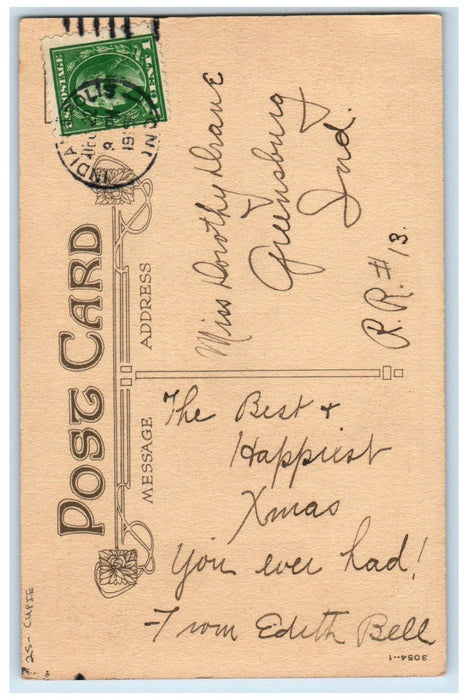 POST CARD
MESSAGE
ADDRESS
1 CENT
U.S. POSTAGE
INDIANAPOLIS
IND.
Miss Dorothy Drane
Greensburg
Ind.
R.R. # 13.
The Best +
Happiest
Xmas
You ever had!
-From Edith Bell
3054--1
25- CUPIE